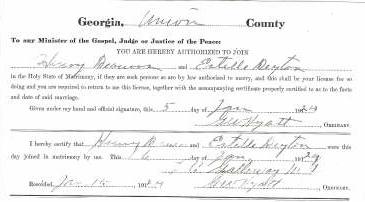 Georgia, Union County
To any Minister of the Gospel, Judge or Justice of the Peace:
YOU ARE HEREBY AUTHORIZED TO JOIN
Henry and Estelle Deyton
in the Holy State of Matrimony, if they are such persons as are by law authorized to marry, and this shall be your license for so
doing and you are required to return to us this license, together with the accompanying certificate properly certified to as to the
facts and date of said marriage.
Given under my hand and official signature, this 5 day of Jan
Geo Hyatt, ORDINARY.
I hereby certify that Henry and Estelle Deyton were this
day joined in matrimony by us. This 6 day of Jan 1924
Galloway
Recorded, Jan 15 192 Geo Hyatt ORDINARY.